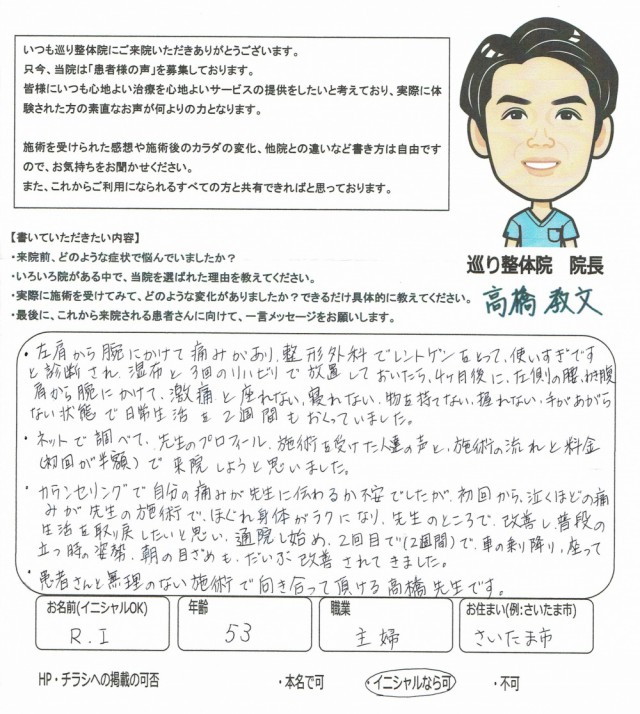 いつも巡り整体院にご来院いただきありがとうございます。
只今、当院は「患者様の声」を募集しております。
皆様にいつも心地よい治療を心地よいサービスの提供をしたいと考えており、実際に体
験された方の素直なお声が何よりの力となります。
施術を受けられた感想や施術後のカラダの変化、他院との違いなど書き方は自由です
ので、お気持ちをお聞かせください。
また、これからご利用になられるすべての方と共有できればと思っております。
【書いていただきたい内容】
・来院前、どのような症状で悩んでいましたか？
・いろいろ院がある中で、当院を選ばれた理由を教えてください。
・実際に施術を受けてみて、どのような変化がありましたか？できるだけ具体的に教えてください。
・最後に、これから来院される患者さんに向けて、一言メッセージをお願いします。
巡り整体院　院長
高橋 教文
・左肩から腕にかけて痛みがあり、整形外科でレントゲンをとって、使いすぎです
と診断され、湿布と3回のリハビリで放置しておいたら、4ヶ月後に、左側の腰、
肩から腕にかけて、激痛と座れない、寝れない、物を持てない、握れない、手があがら
ない状態で日常生活を2週間もおくっていました。
・ネットで調べて、先生のプロフィール、施術を受けた人達の声と、施術の流れと料金
(初回が半額)で来院しようと思いました。
・カウンセリングで自分の痛みが先生に伝わるか不安でしたが、初回から、泣くほどの痛
みが先生の施術で、ほぐれ身体がラクになり、先生のところで、改善し普段の
生活を取り戻したいと思い、通院し始め、2回目で(2週間)で、車の乗り降り、座って
立つ時の姿勢、朝の目ざめも、だいぶ改善されてきました。
・患者さんと無理のない施術で向き合って頂ける高橋先生です。
お名前(イニシャルOK)
R.I
年齢
53
職業
主婦
お住まい(例:さいたま市)
さいたま市
HP・チラシへの掲載の可否　・本名で可　・イニシャルなら可　・不可